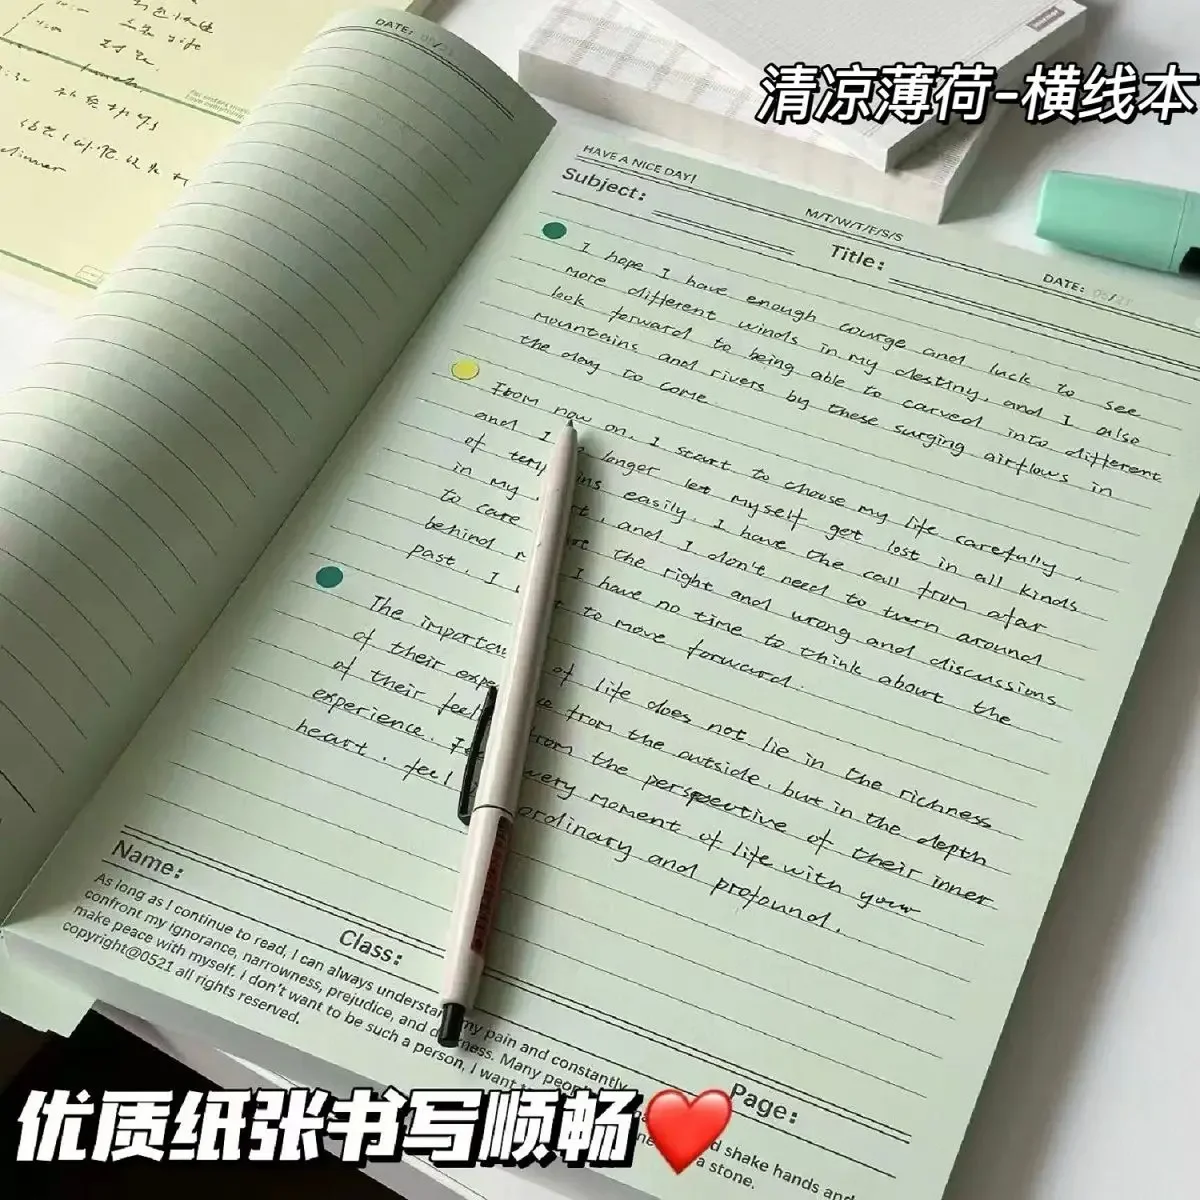 清凉薄荷-横线本
HAVE A NICE DAY!
M/T/W/T/F/S/S
Subject:
Title:
DATE:
DATE: 05/21
I hope I have enough courge and luck to see
more different winds in my destiny, and I also
look forward to being able to carved into different
mountains and rivers by these surging airflows in
the day to come.
From now on, I start to choose my life carefully,
and I longer let myself get lost in all kinds
of easily. I have the call from afar
in my , and I don't need to turn around
to care the right and wrong and discussions
behind I have no time to think about the
past. I to move forward.
The of life does not lie in the richness
of their from the outside, but in the depth
of their from the perspective of their inner
experience. every moment of life with your
heart. feel ordinary and profound.
Name:
Class:
Page:
As long as I continue to read, I can always understand my pain and constantly
confront my ignorance, narrowness, prejudice, and Many
make peace with myself. I don't want to be such a person, I want shake hands and
a stone.
copyright@0521 all rights reserved.
dinner
优质纸张书写顺畅